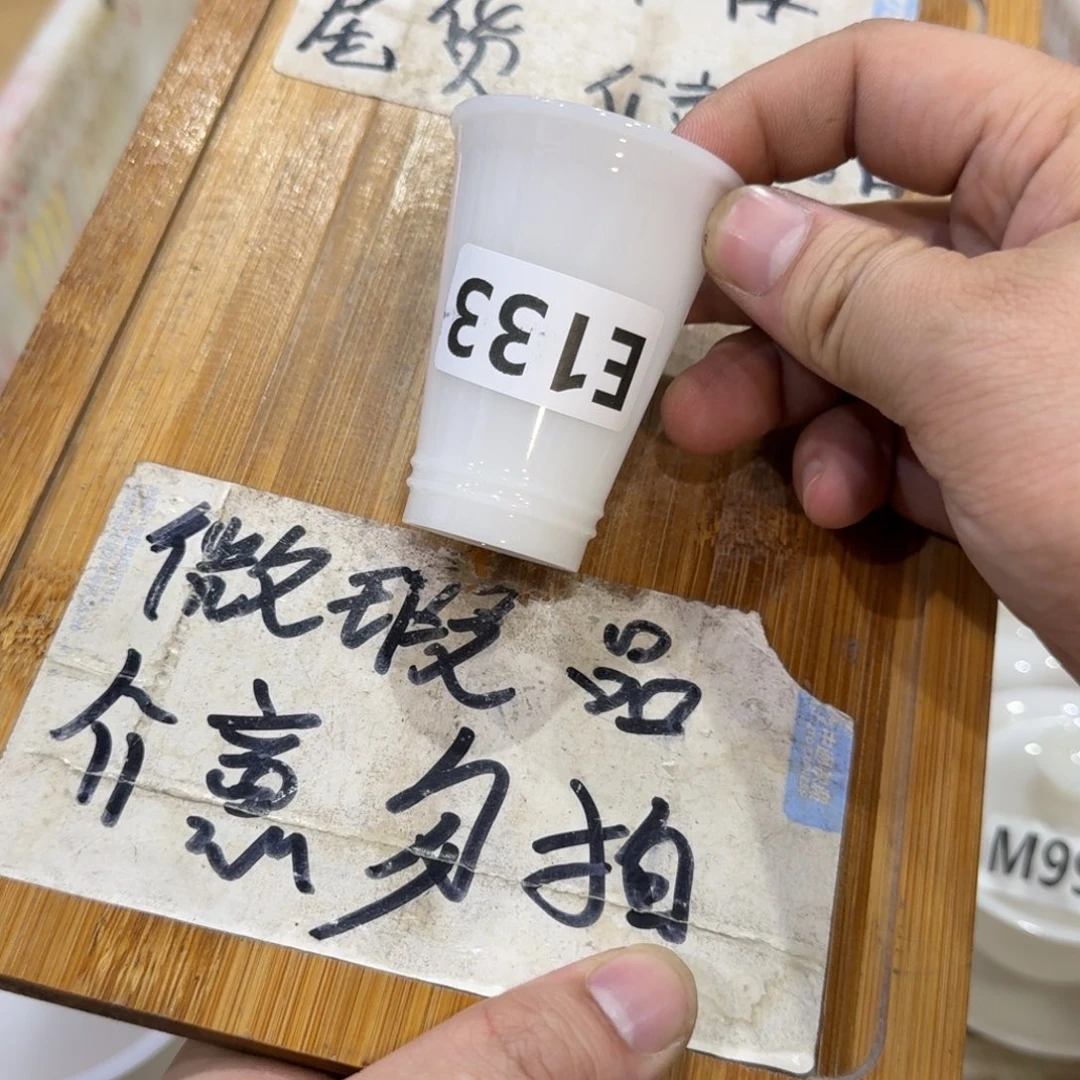 尾货
E133
微瑕品
介惠多拍
M99